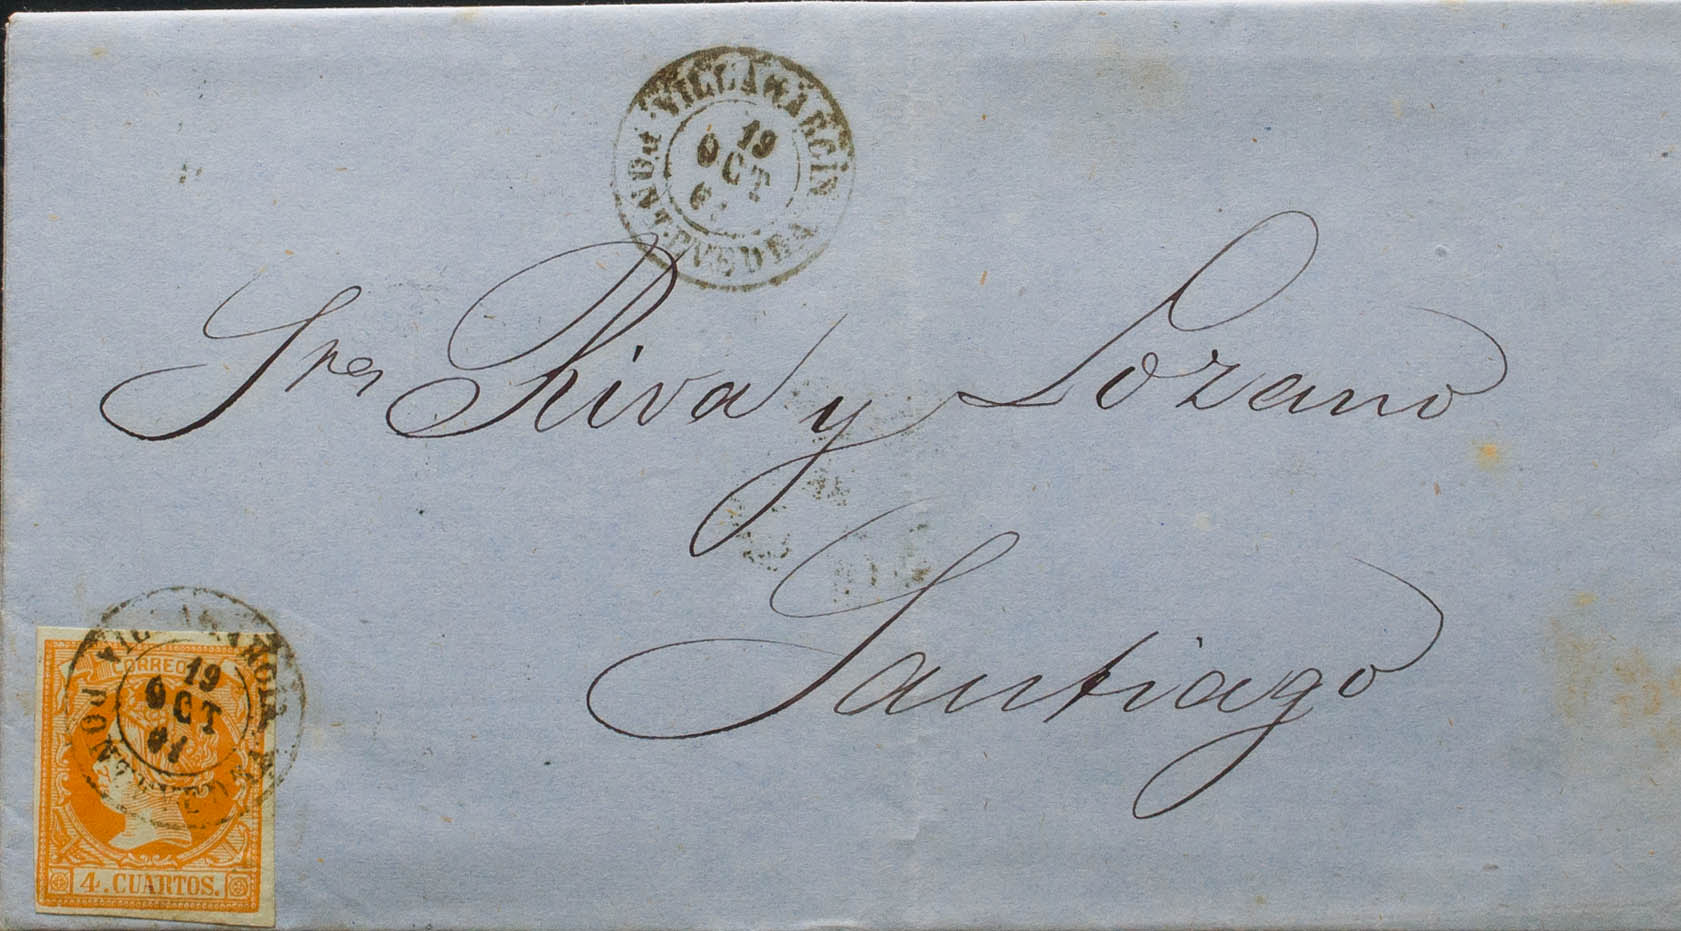 VILLAGARCIA
19
OCT
61
PONTEVEDRA
Sres Riva y Lozano
Santiago
VILLAGARCIA
19
OCT
61
PONTEVEDRA
CORREOS
4. CUARTOS.